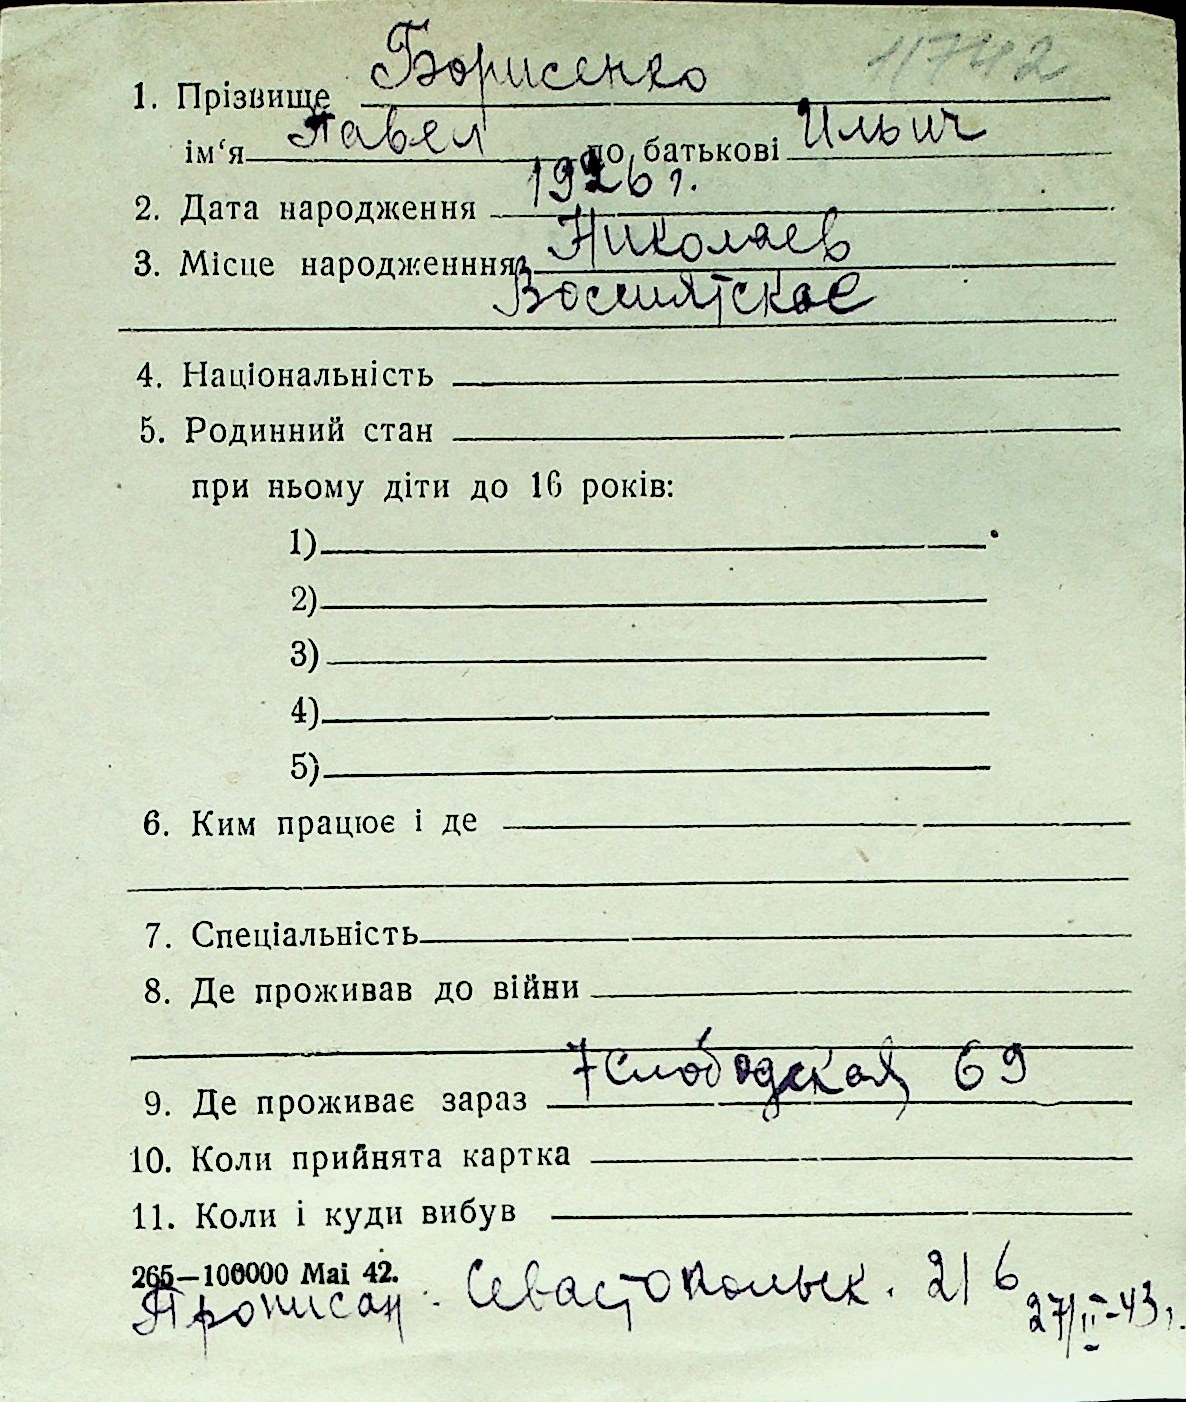 11742
1. Прізвище Борисенко
ім‘я Павел по батькові Ильич
2. Дата народження 1926 г.
3. Місце народженння Николаев
4. Національність
5. Родинний стан
при ньому діти до 16 років:
1)
2)
3)
4)
5)
6. Ким працює і де
7. Спеціальність
8. Де проживав до війни
9. Де проживає зараз 7 Слободская 69
10. Коли прийнята картка
11. Коли і куди вибув
265—100000 Mai 42.
Прописан. Севастопольск. 21 6
27/II-43 г.